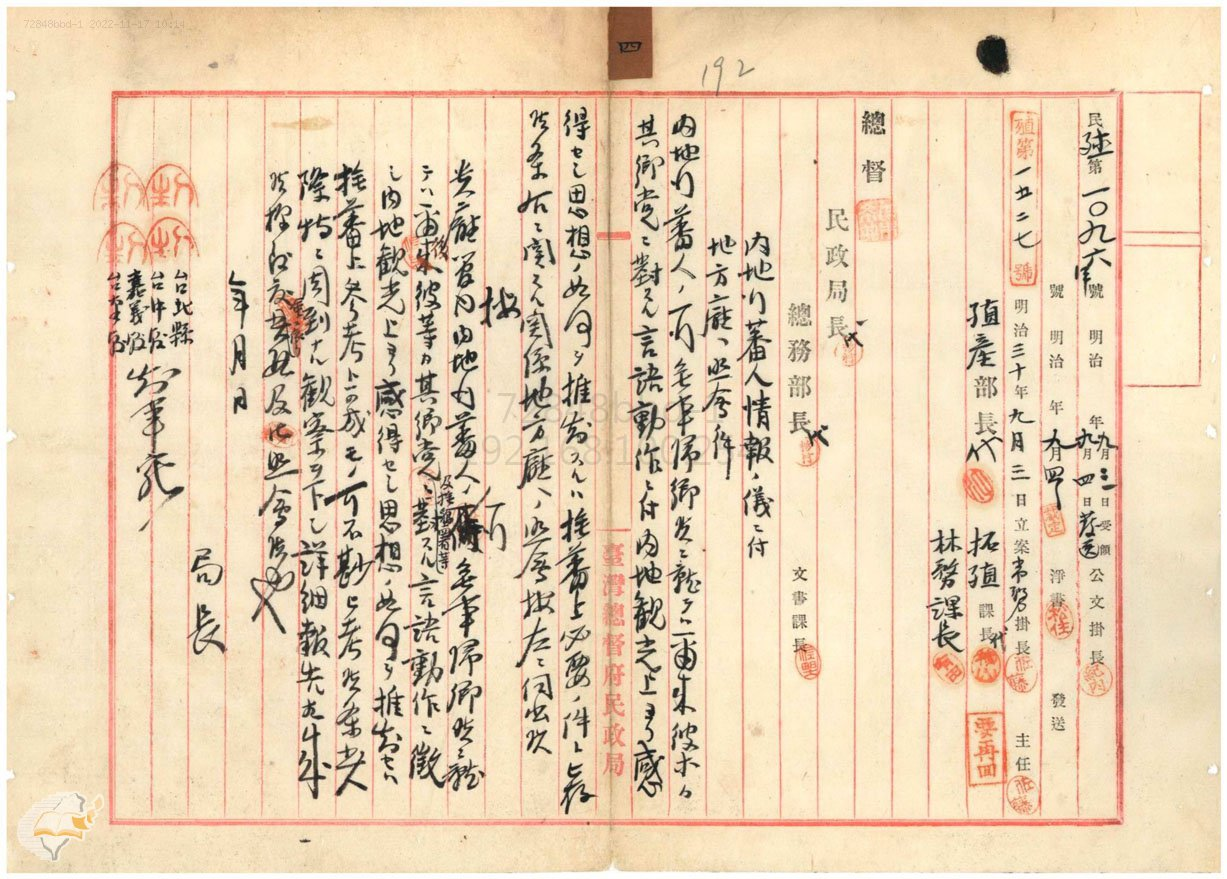 72848bbd-1 2022-11-17 10:14
四
192
民殖第一〇九六號 明治 年九月三日受領 公文掛長
號 明治 年九月四日發送
殖第一五二七號 明治三十年九月三日立案 掛長 主任
淨書 發送
殖產部長代 拓殖課長代
林務課長
要再回
總督
民政局長代
總務部長代 文書課長
內地行蕃人情報ノ儀ニ付
地方廳ヘ照會ノ件
內地行蕃人ノ一行無事歸鄉 爾來彼等カ
其鄉黨ニ對スル言語動作ニ付內地觀光上ヨリ感
得セシ思想ノ如何ヲ推知スルハ撫蕃上必要ノ件ト存
候条右ニ關スル關係地方廳ヘ照會按左ニ伺出候
按
貴廳管內內地行蕃人ノ一行無事歸鄉候ニ就
テハ爾來彼等カ其鄉黨ニ對スル言語動作ニ徵
シ內地觀光上ヨリ感得セシ思想ノ如何ヲ推知セハ
撫蕃上參考ト可成モノ可不尠ト考候条
此際特ニ周到ナル觀察ヲ下シ詳細報告
候樣致度 及照會候也
年月日
局長
台北縣
台中縣
嘉義縣
知事宛
臺灣總督府民政局